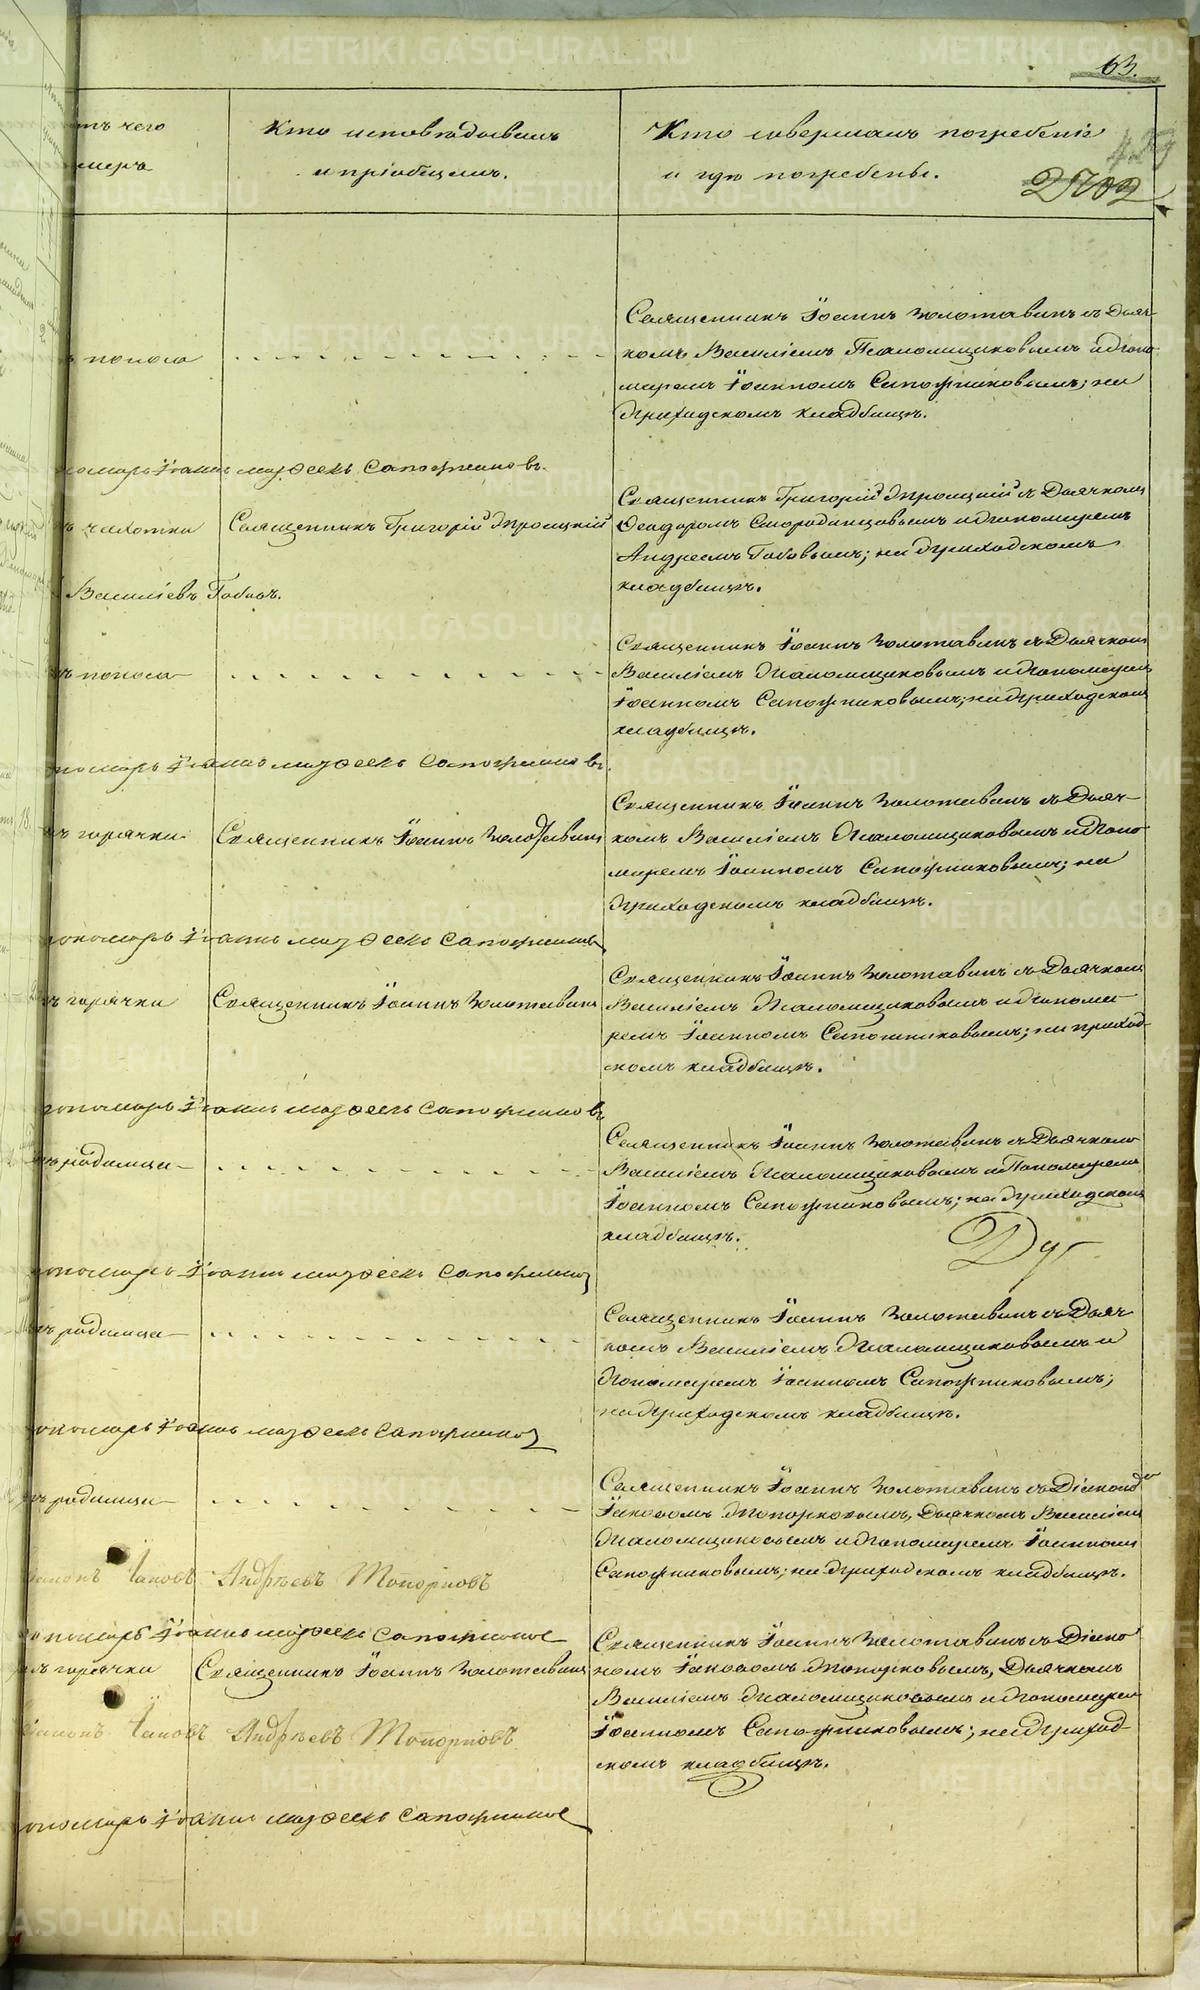 63.
отъ чего
умеръ
Кто исповѣдывалъ
и пріобщалъ.
Кто совершалъ погребеніе
и гдѣ погребены.
2702
поноса
Священникъ Іоаннъ Золотавинъ съ Дьяч-
комъ Василіемъ Псаломщиковымъ и Поно-
маремъ Іоанномъ Сапожниковымъ; на
Приходскомъ кладбищѣ.
пономарь Іоаннъ Сапожниковъ.
чахотки
Священникъ Григорій Троицкій
Священникъ Григорій Троицкій съ Дьячкомъ
Ѳеодоромъ Смородинцовымъ и Пономаремъ
Андреемъ Бабовымъ; на Приходскомъ
кладбищѣ.
Василіевъ
поноса
Священникъ Іоаннъ Золотавинъ съ Дьячкомъ
Василіемъ Псаломщиковымъ и Пономаремъ
Іоанномъ Сапожниковымъ; на Приходскомъ
кладбищѣ.
пономарь Іоаннъ Сапожниковъ.
горячки
Священникъ Іоаннъ Золотавинъ
Священникъ Іоаннъ Золотавинъ съ Дьяч-
комъ Василіемъ Псаломщиковымъ и Поно-
маремъ Іоанномъ Сапожниковымъ; на
Приходскомъ кладбищѣ.
пономарь Іоаннъ Сапожниковъ
горячки
Священникъ Іоаннъ Золотавинъ
Священникъ Іоаннъ Золотавинъ съ Дьячкомъ
Василіемъ Псаломщиковымъ и Понома-
ремъ Іоанномъ Сапожниковымъ; на приход-
скомъ кладбищѣ.
пономарь Іоаннъ Сапожниковъ
родимца
Священникъ Іоаннъ Золотавинъ съ Дьячкомъ
Василіемъ Псаломщиковымъ и Пономаремъ
Іоанномъ Сапожниковымъ; на Приходскомъ
кладбищѣ.
пономарь Іоаннъ Сапожниковъ
родимца
Священникъ Іоаннъ Золотавинъ съ Дьяч-
комъ Василіемъ Псаломщиковымъ и
Пономаремъ Іоанномъ Сапожниковымъ;
на Приходскомъ кладбищѣ.
пономарь Іоаннъ Сапожниковъ
родимца
Священникъ Іоаннъ Золотавинъ съ Діакономъ
Іаковомъ Топорковымъ, Дьячкомъ Василіемъ
Псаломщиковымъ и Пономаремъ Іоанномъ
Сапожниковымъ; на Приходскомъ кладбищѣ.
Діаконъ Іаковъ Андрѣевъ Топорковъ
пономарь Іоаннъ Сапожниковъ
горячки
Священникъ Іоаннъ Золотавинъ
Священникъ Іоаннъ Золотавинъ съ Діако-
номъ Іаковомъ Топорковымъ, Дьячкомъ
Василіемъ Псаломщиковымъ и Пономаремъ
Іоанномъ Сапожниковымъ; на Приход-
скомъ кладбищѣ.
Діаконъ Іаковъ Андрѣевъ Топорковъ
пономарь Іоаннъ Сапожниковъ
METRIKI.GASO-URAL.RU